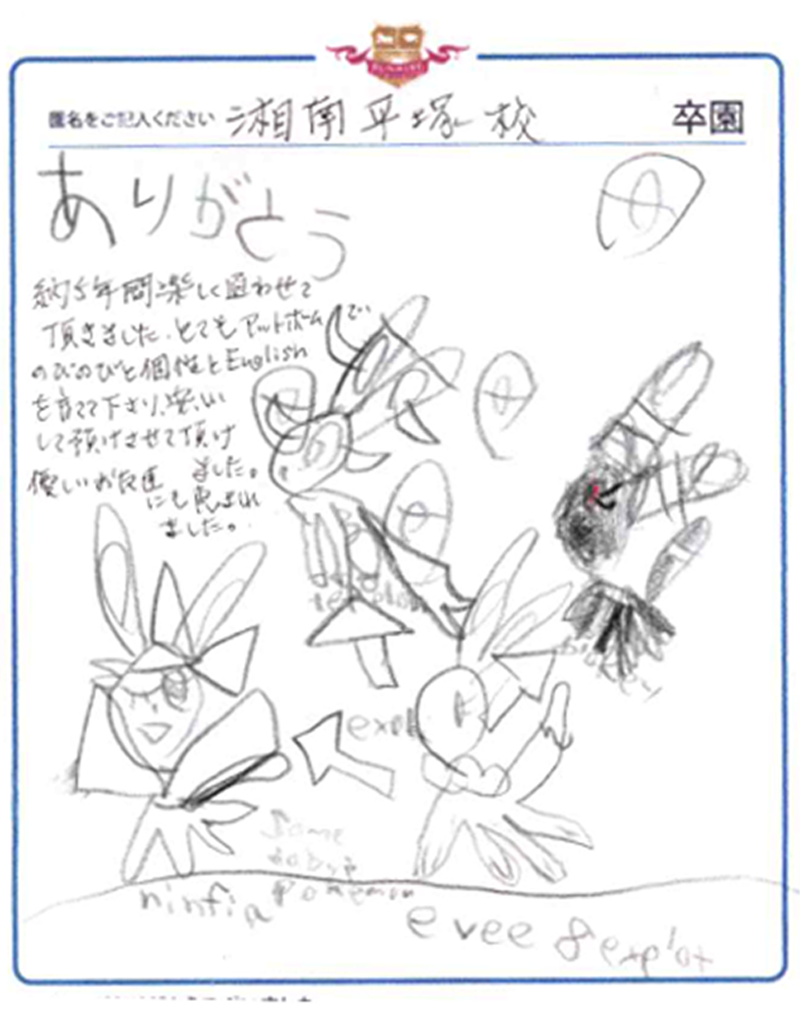 匿名をご記入ください 湘南平塚校 卒園
ありがとう
約5年間楽しく通わせて
頂きました。とてもアットホームで
のびのびと個性とEnglish
を育てて下さり、安心
して預けさせて頂け
ました。
優しいお友達
にも恵まれ
ました。
explo
Some
Pokemon
ninfia
evee & explot